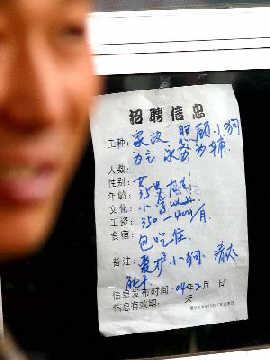 招聘信息
工种: 家政 照顾小狗
为主 家务为辅
人数:
性别: 女
年龄: 35岁
文化: 小学
工资: 350-400/月
食宿: 包吃住
备注: 爱护小狗 清洁
信息发布时间: 04年2月 日
信息有效期: 天